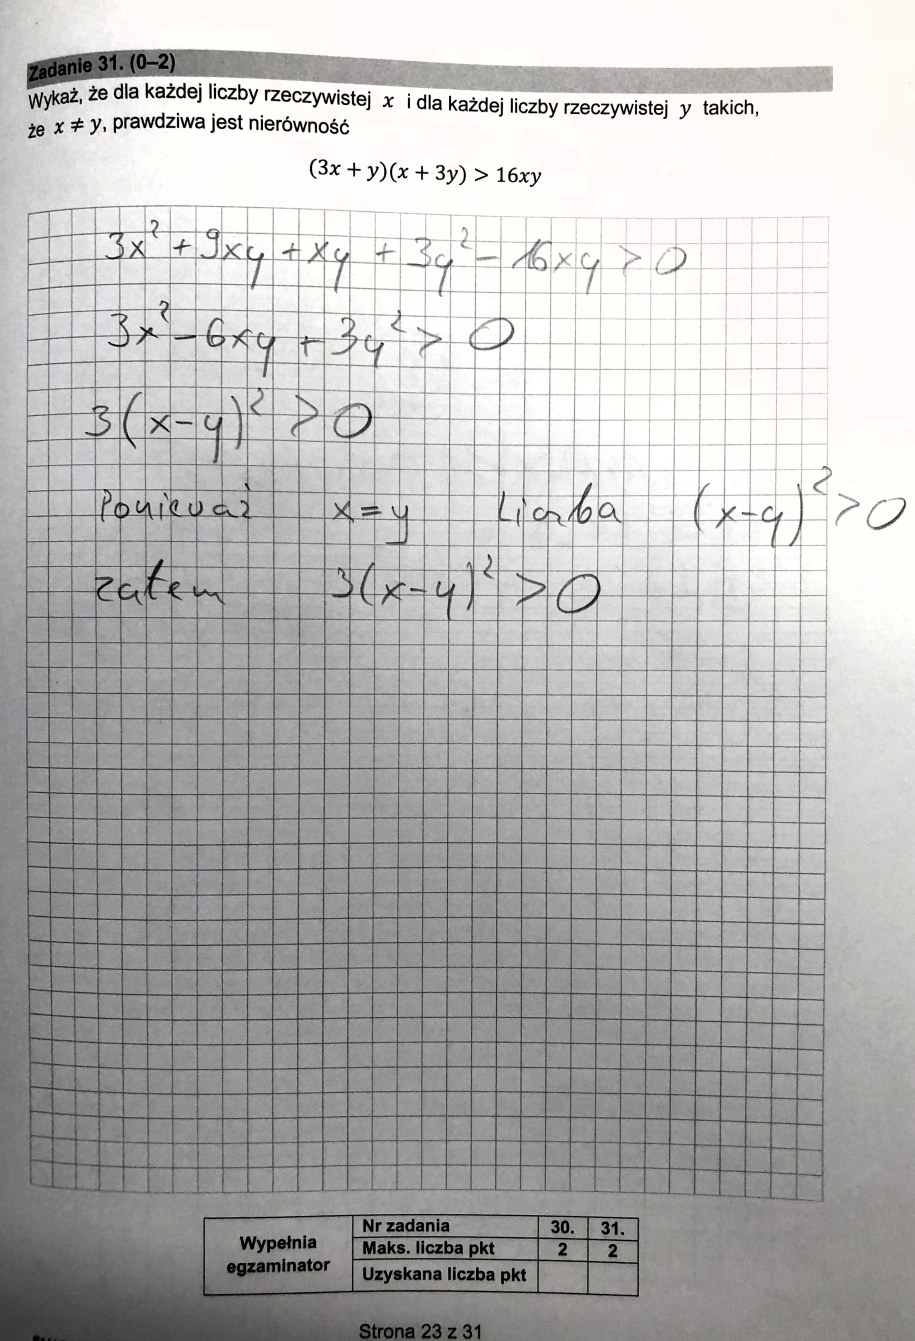 Zadanie 31. (0–2)
Wykaż, że dla każdej liczby rzeczywistej x i dla każdej liczby rzeczywistej y takich,
że x ≠ y, prawdziwa jest nierówność
(3x + y)(x + 3y) > 16xy
3x² + 9xy + xy + 3y² − 16xy > 0
3x² − 6xy + 3y² > 0
3(x−y)² > 0
Ponieważ x = y Liczba (x−y)² > 0
zatem 3(x−y)² > 0
Wypełnia egzaminator
Nr zadania 30. 31.
Maks. liczba pkt 2 2
Uzyskana liczba pkt
Strona 23 z 31